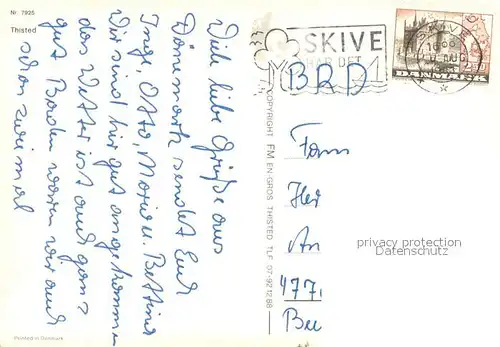 Nr. 7925
Thisted
Viele liebe Grüße aus
Dänemark sendet Euch
Inge, Otto, Marion u. Bettina
Wir sind hier gut angekommen
das Wetter ist auch ganz
gut Baden waren wir auch
schon zweimal
Printed in Denmark
COPYRIGHT FM EN-GROS THISTED TLF. 07-92 12 88
SKIVE
HAR DET
SKIVE
DANMARK
BRD
Fam
Her
An
477
privacy protection
Datenschutz